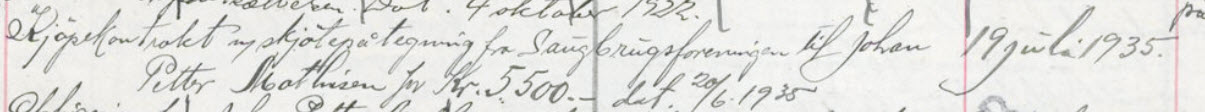 Dat. 4 oktober 1922.
Kjöpekontrakt m/skjötepåtegning fra Saugbrugsforeningen til Johan 19 juli 1935.
Petter Mathisen for Kr. 5.500.- dat. 20/6. 1935